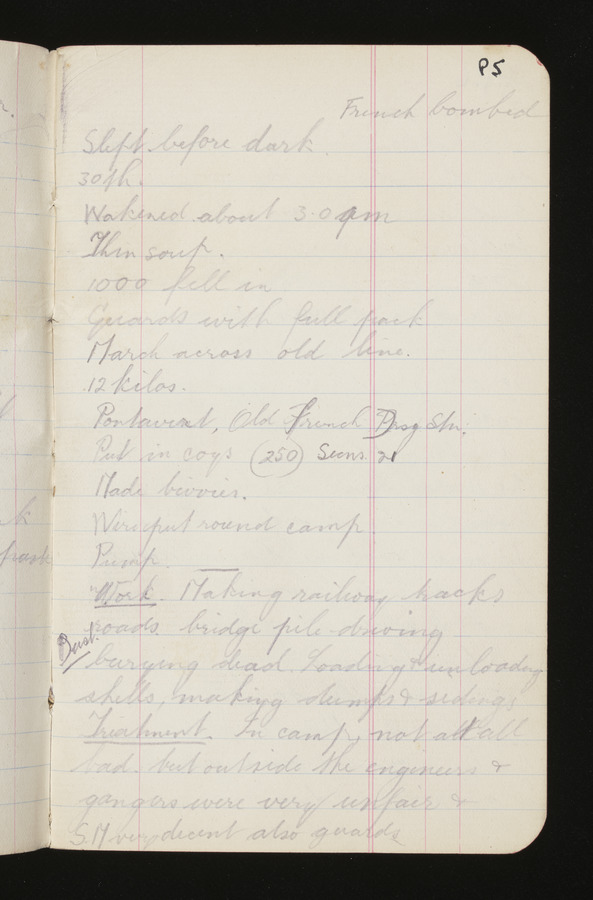 P5
French bombed
Slept before dark.
30th.
Wakened about 3.0 am
Thin soup.
1000 fell in
Guards with full pack
March across old line.
12 kilos.
Pontavert, Old French Drsg Stn.
Put in coys (250) Secns
Made bivvies.
Wire put round camp
Pump.
"Work. Making railway tracks
Dust. roads. bridge pile-driving
burying dead. Loading & unloading
shells, making dumps & sidings
Treatment. In camp, not at all
bad. but outside the engineers &
gangers were very unfair &
S.M very decent also guards